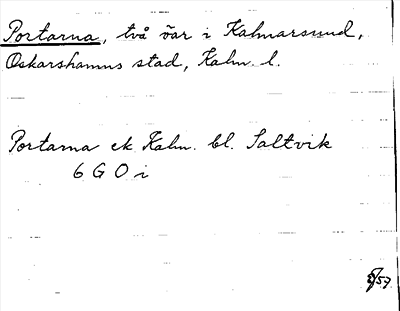 Portarna, två öar i Kalmarsund,
Oskarshamns stad, Kalm. l.
Portarna ek. Kalm. bl. Saltvik
6 G O i